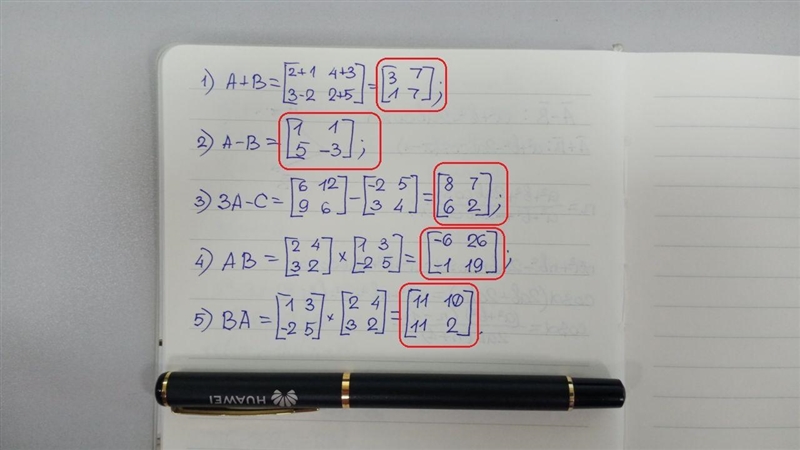 1) A+B = [2+1 4+3; 3-2 2+5] = [3 7; 1 7];
2) A-B = [1 1; 5 -3];
3) 3A-C = [6 12; 9 6] - [-2 5; 3 4] = [8 7; 6 2];
4) AB = [2 4; 3 2] × [1 3; -2 5] = [-6 26; -1 19];
5) BA = [1 3; -2 5] × [2 4; 3 2] = [11 10; 11 2].
HUAWEI